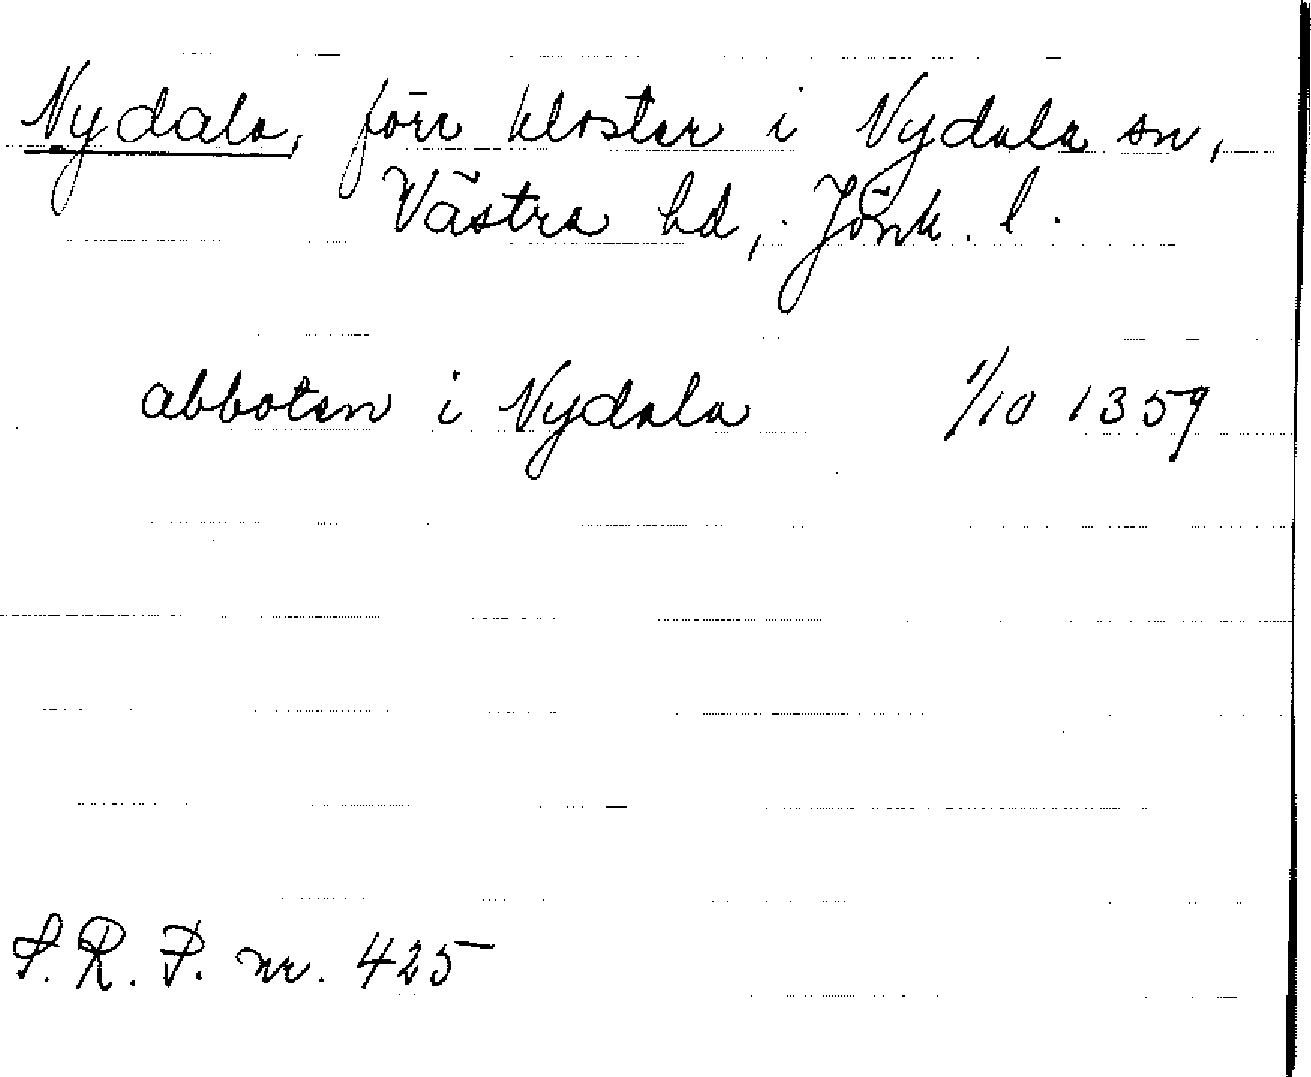 Nydala, förr kloster i Nydala sn,
Västra hd, Jönk. l.
abboten i Nydala 1/10 1359
S.R.P. nr. 425